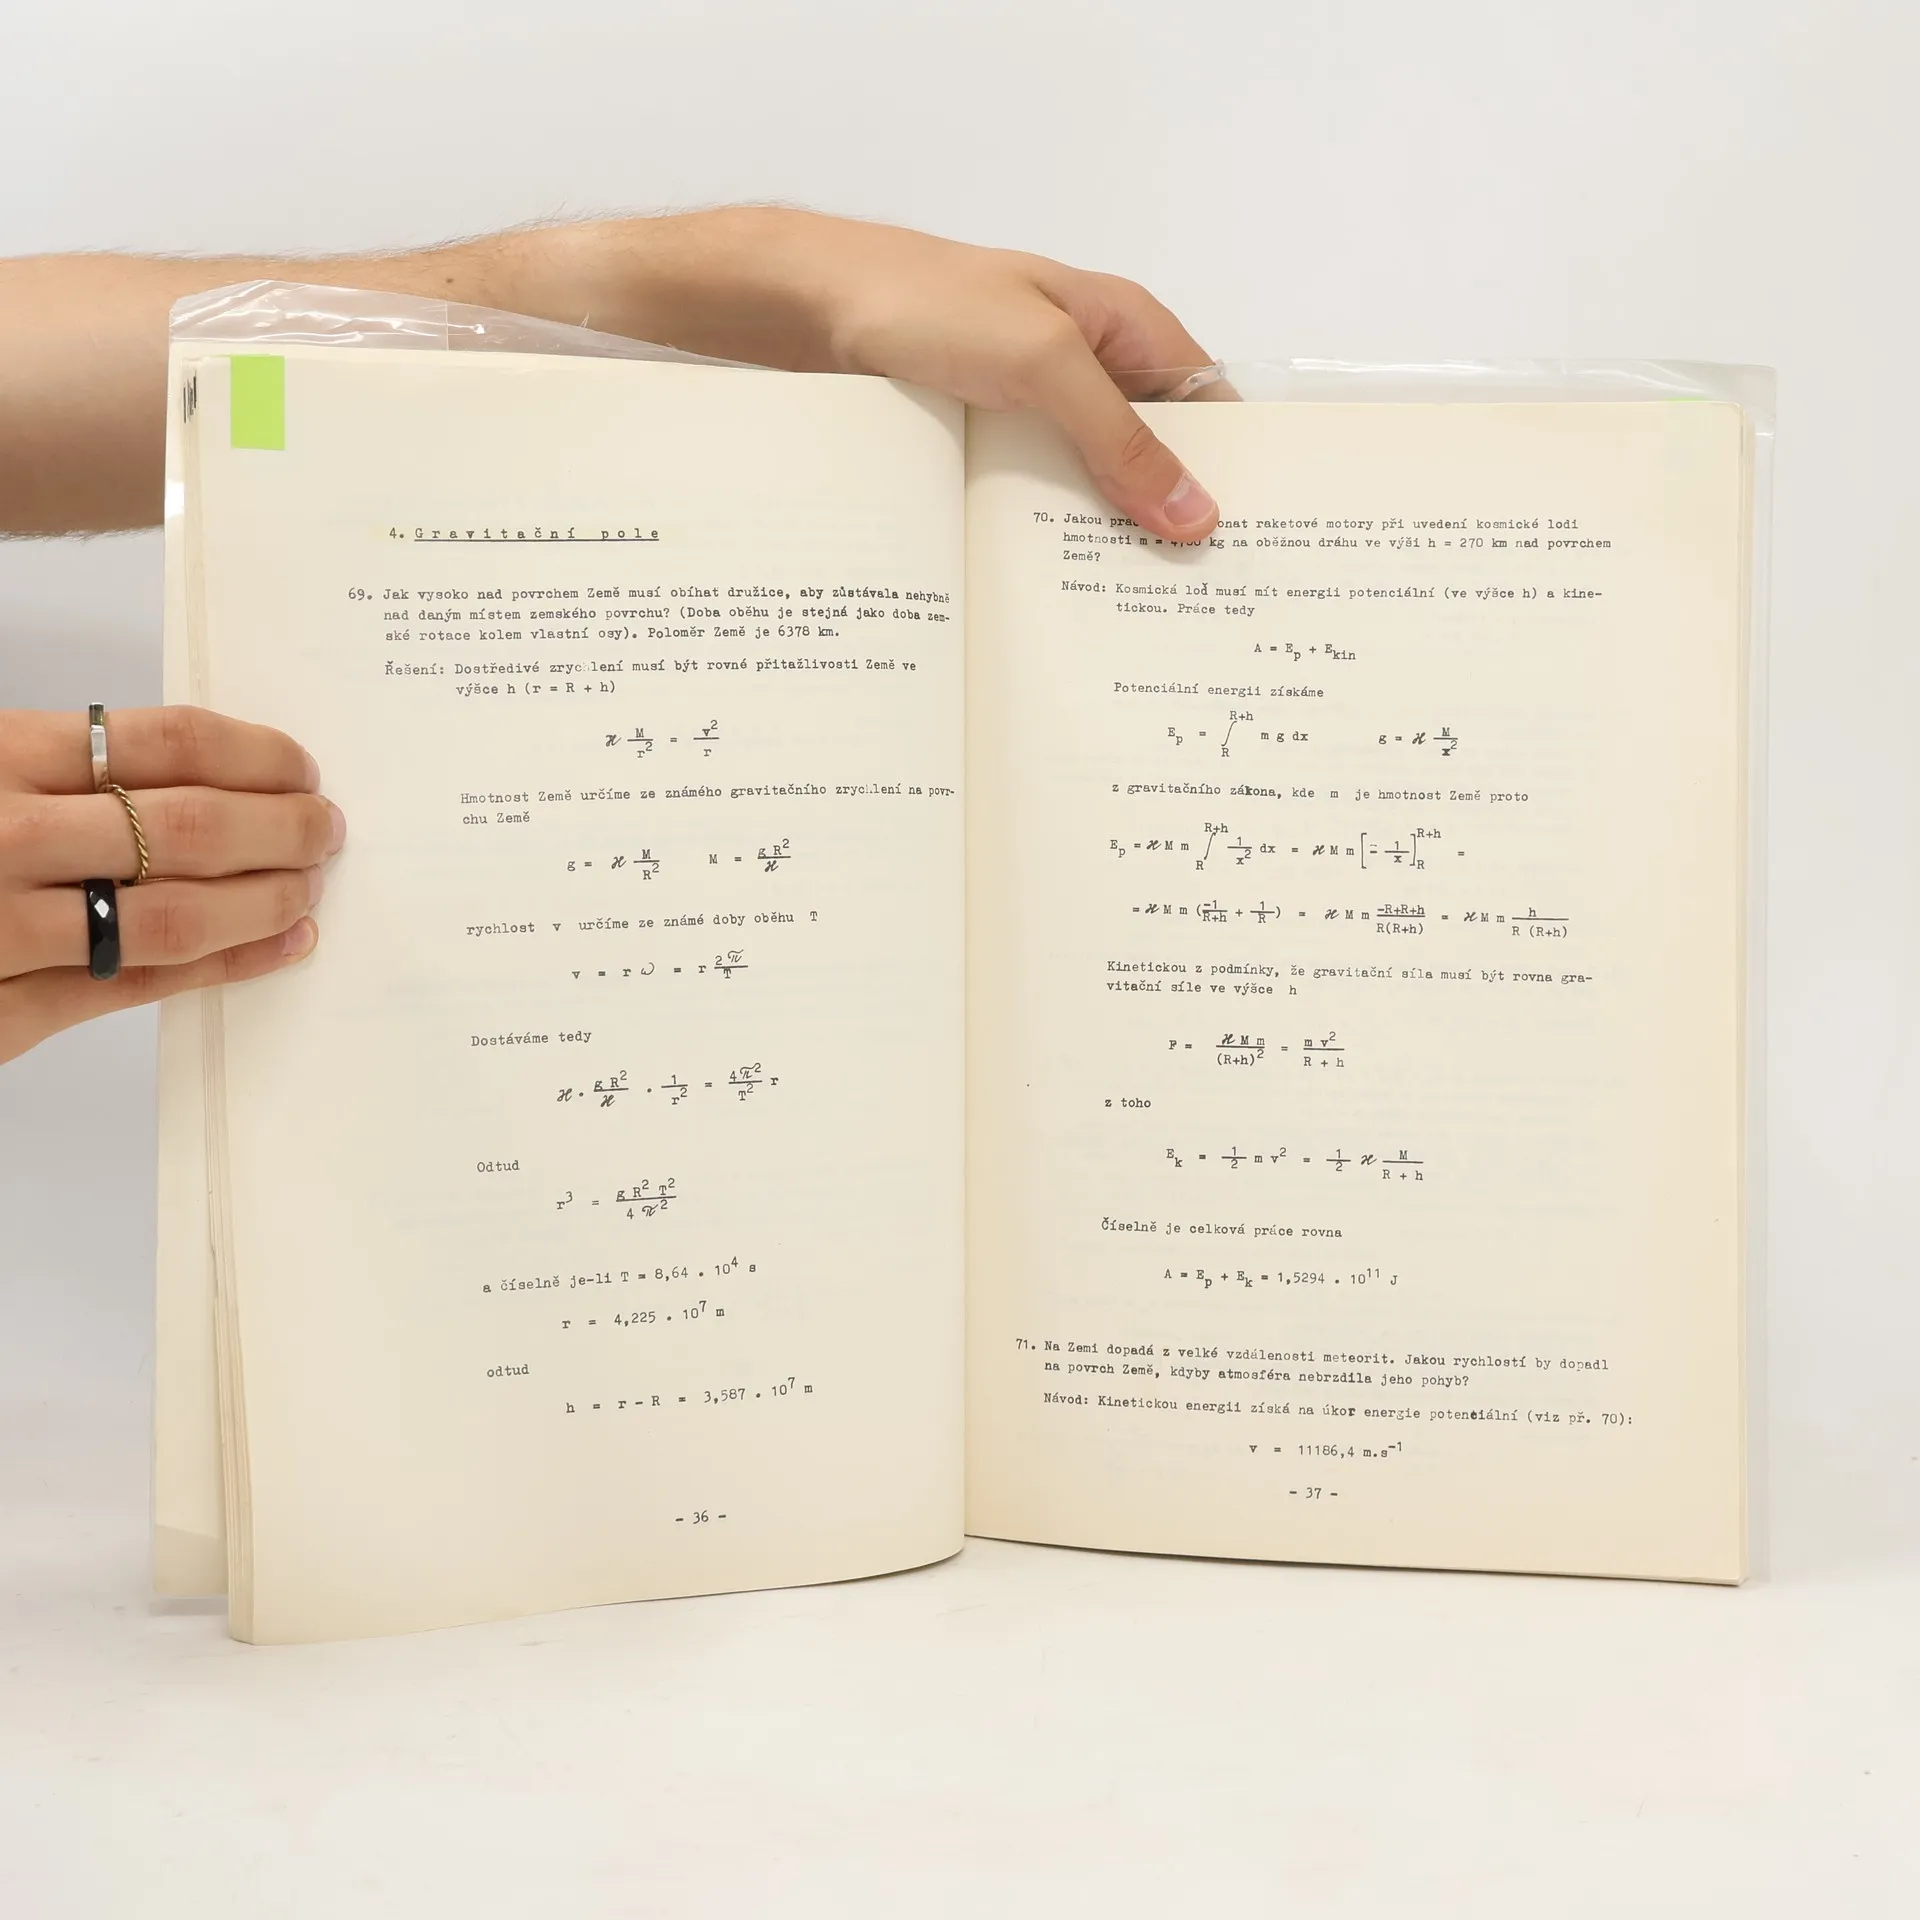 4. Gravitační pole
69. Jak vysoko nad povrchem Země musí obíhat družice, aby zůstávala nehybně
nad daným místem zemského povrchu? (Doba oběhu je stejná jako doba zem-
ské rotace kolem vlastní osy). Poloměr Země je 6378 km.
Řešení: Dostředivé zrychlení musí být rovné přitažlivosti Země ve
výšce h (r = R + h)
ϰ M/r² = v²/r
Hmotnost Země určíme ze známého gravitačního zrychlení na povr-
chu Země
g = ϰ M/R² M = g R²/ϰ
rychlost v určíme ze známé doby oběhu T
v = r ω = r 2π/T
Dostáváme tedy
ϰ . g R²/ϰ . 1/r² = 4π²/T² r
Odtud
r³ = g R² T²/4 π²
a číselně je-li T = 8,64 . 10⁴ s
r = 4,225 . 10⁷ m
odtud
h = r - R = 3,587 . 10⁷ m
- 36 -
70. Jakou onat raketové motory při uvedení kosmické lodi
hmotnosti m = kg na oběžnou dráhu ve výši h = 270 km nad povrchem
Země?
Návod: Kosmická loď musí mít energii potenciální (ve výšce h) a kine-
tickou. Práce tedy
A = Eₚ + Ekin
Potenciální energii získáme
Eₚ = ∫_R^{R+h} m g dx g = ϰ M/x²
z gravitačního zákona, kde m je hmotnost Země proto
Eₚ = ϰ M m ∫_R^{R+h} 1/x² dx = ϰ M m [- 1/x]_R^{R+h} =
= ϰ M m (-1/R+h + 1/R) = ϰ M m -R+R+h/R(R+h) = ϰ M m h/R (R+h)
Kinetickou z podmínky, že gravitační síla musí být rovna gra-
vitační síle ve výšce h
F = ϰ M m/(R+h)² = m v²/R + h
z toho
Eₖ = 1/2 m v² = 1/2 ϰ M/R + h
Číselně je celková práce rovna
A = Eₚ + Eₖ = 1,5294 . 10¹¹ J
71. Na Zemi dopadá z velké vzdálenosti meteorit. Jakou rychlostí by dopadl
na povrch Země, kdyby atmosféra nebrzdila jeho pohyb?
Návod: Kinetickou energii získá na úkor energie potenciální (viz př. 70):
v = 11186,4 m.s⁻¹
- 37 -